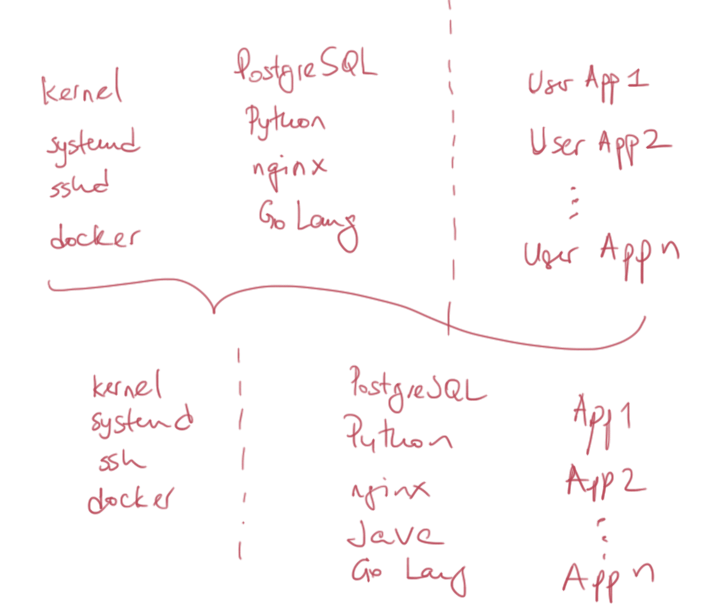 kernel
systemd
sshd
docker
PostgreSQL
Python
nginx
Go Lang
User App 1
User App 2
User App n
kernel
systemd
ssh
docker
PostgreSQL
Python
nginx
Java
Go Lang
App 1
App 2
App n